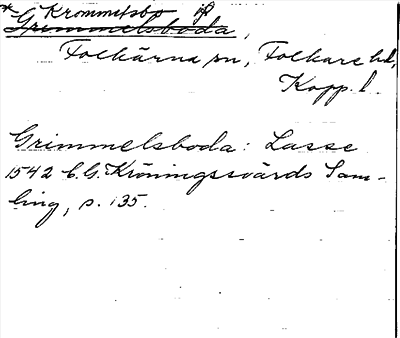 * Krommelsbo
Grimmelsboda,
Folkärna sn, Folkare hd,
Kopp. l.
Grimmelsboda: Lasse
1542 C.G. Kröningssvärds Sam-
ling, s. 135.